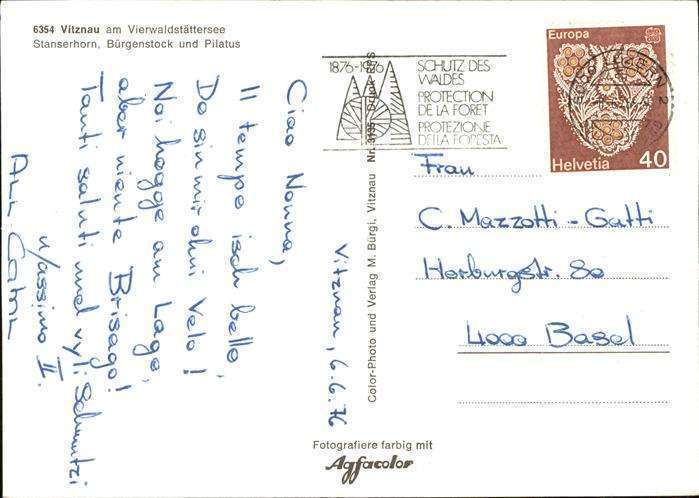 6354 Vitznau am Vierwaldstättersee
Stanserhorn, Bürgenstock und Pilatus
Vitznau, 6.6.76
Ciao Nonna,
Il tempo isch bello
Do sin mir ohni Velo!
Noi hogge am Lago,
aber niente Brisago!
Tanti saluti und vyli Schmutzi
M/assimo II.
Color-Photo und Verlag M. Bürgi, Vitznau Nr. 3135
Fotografiere farbig mit
Agfacolor
1876-1976
SCHUTZ DES
WALDES
PROTECTION
DE LA FORET
PROTEZIONE
DELLA FORESTA
Europa
Helvetia 40
Frau
C. Mazzotti-Gatti
Horburgstr. 80
4000 Basel